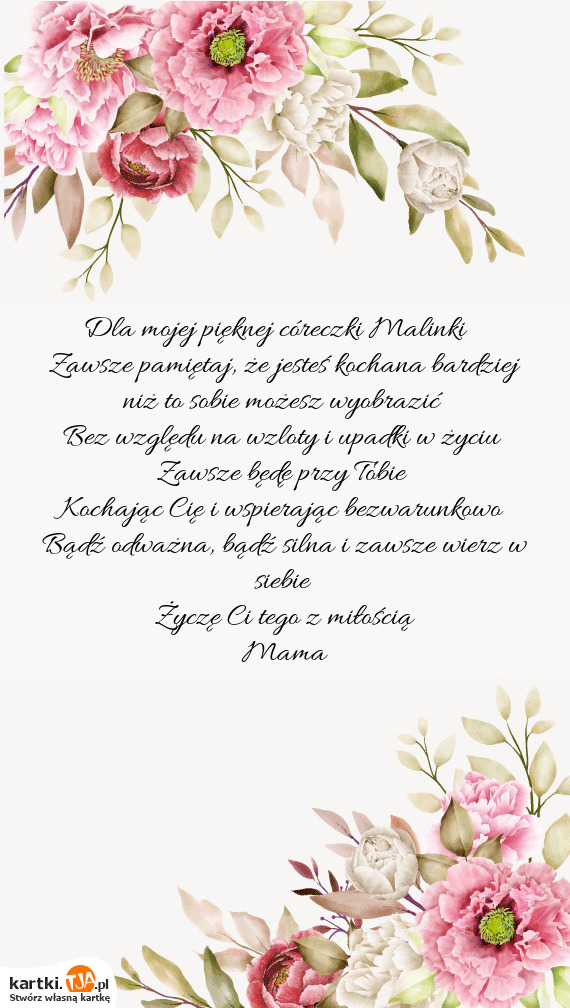 Dla mojej pięknej córeczki Malinki
Zawsze pamiętaj, że jesteś kochana bardziej
niż to sobie możesz wyobrazić
Bez względu na wzloty i upadki w życiu
Zawsze będę przy Tobie
Kochając Cię i wspierając bezwarunkowo
Bądź odważna, bądź silna i zawsze wierz w
siebie
Życzę Ci tego z miłością
Mama
kartki.TJA.pl
Stwórz własną kartkę